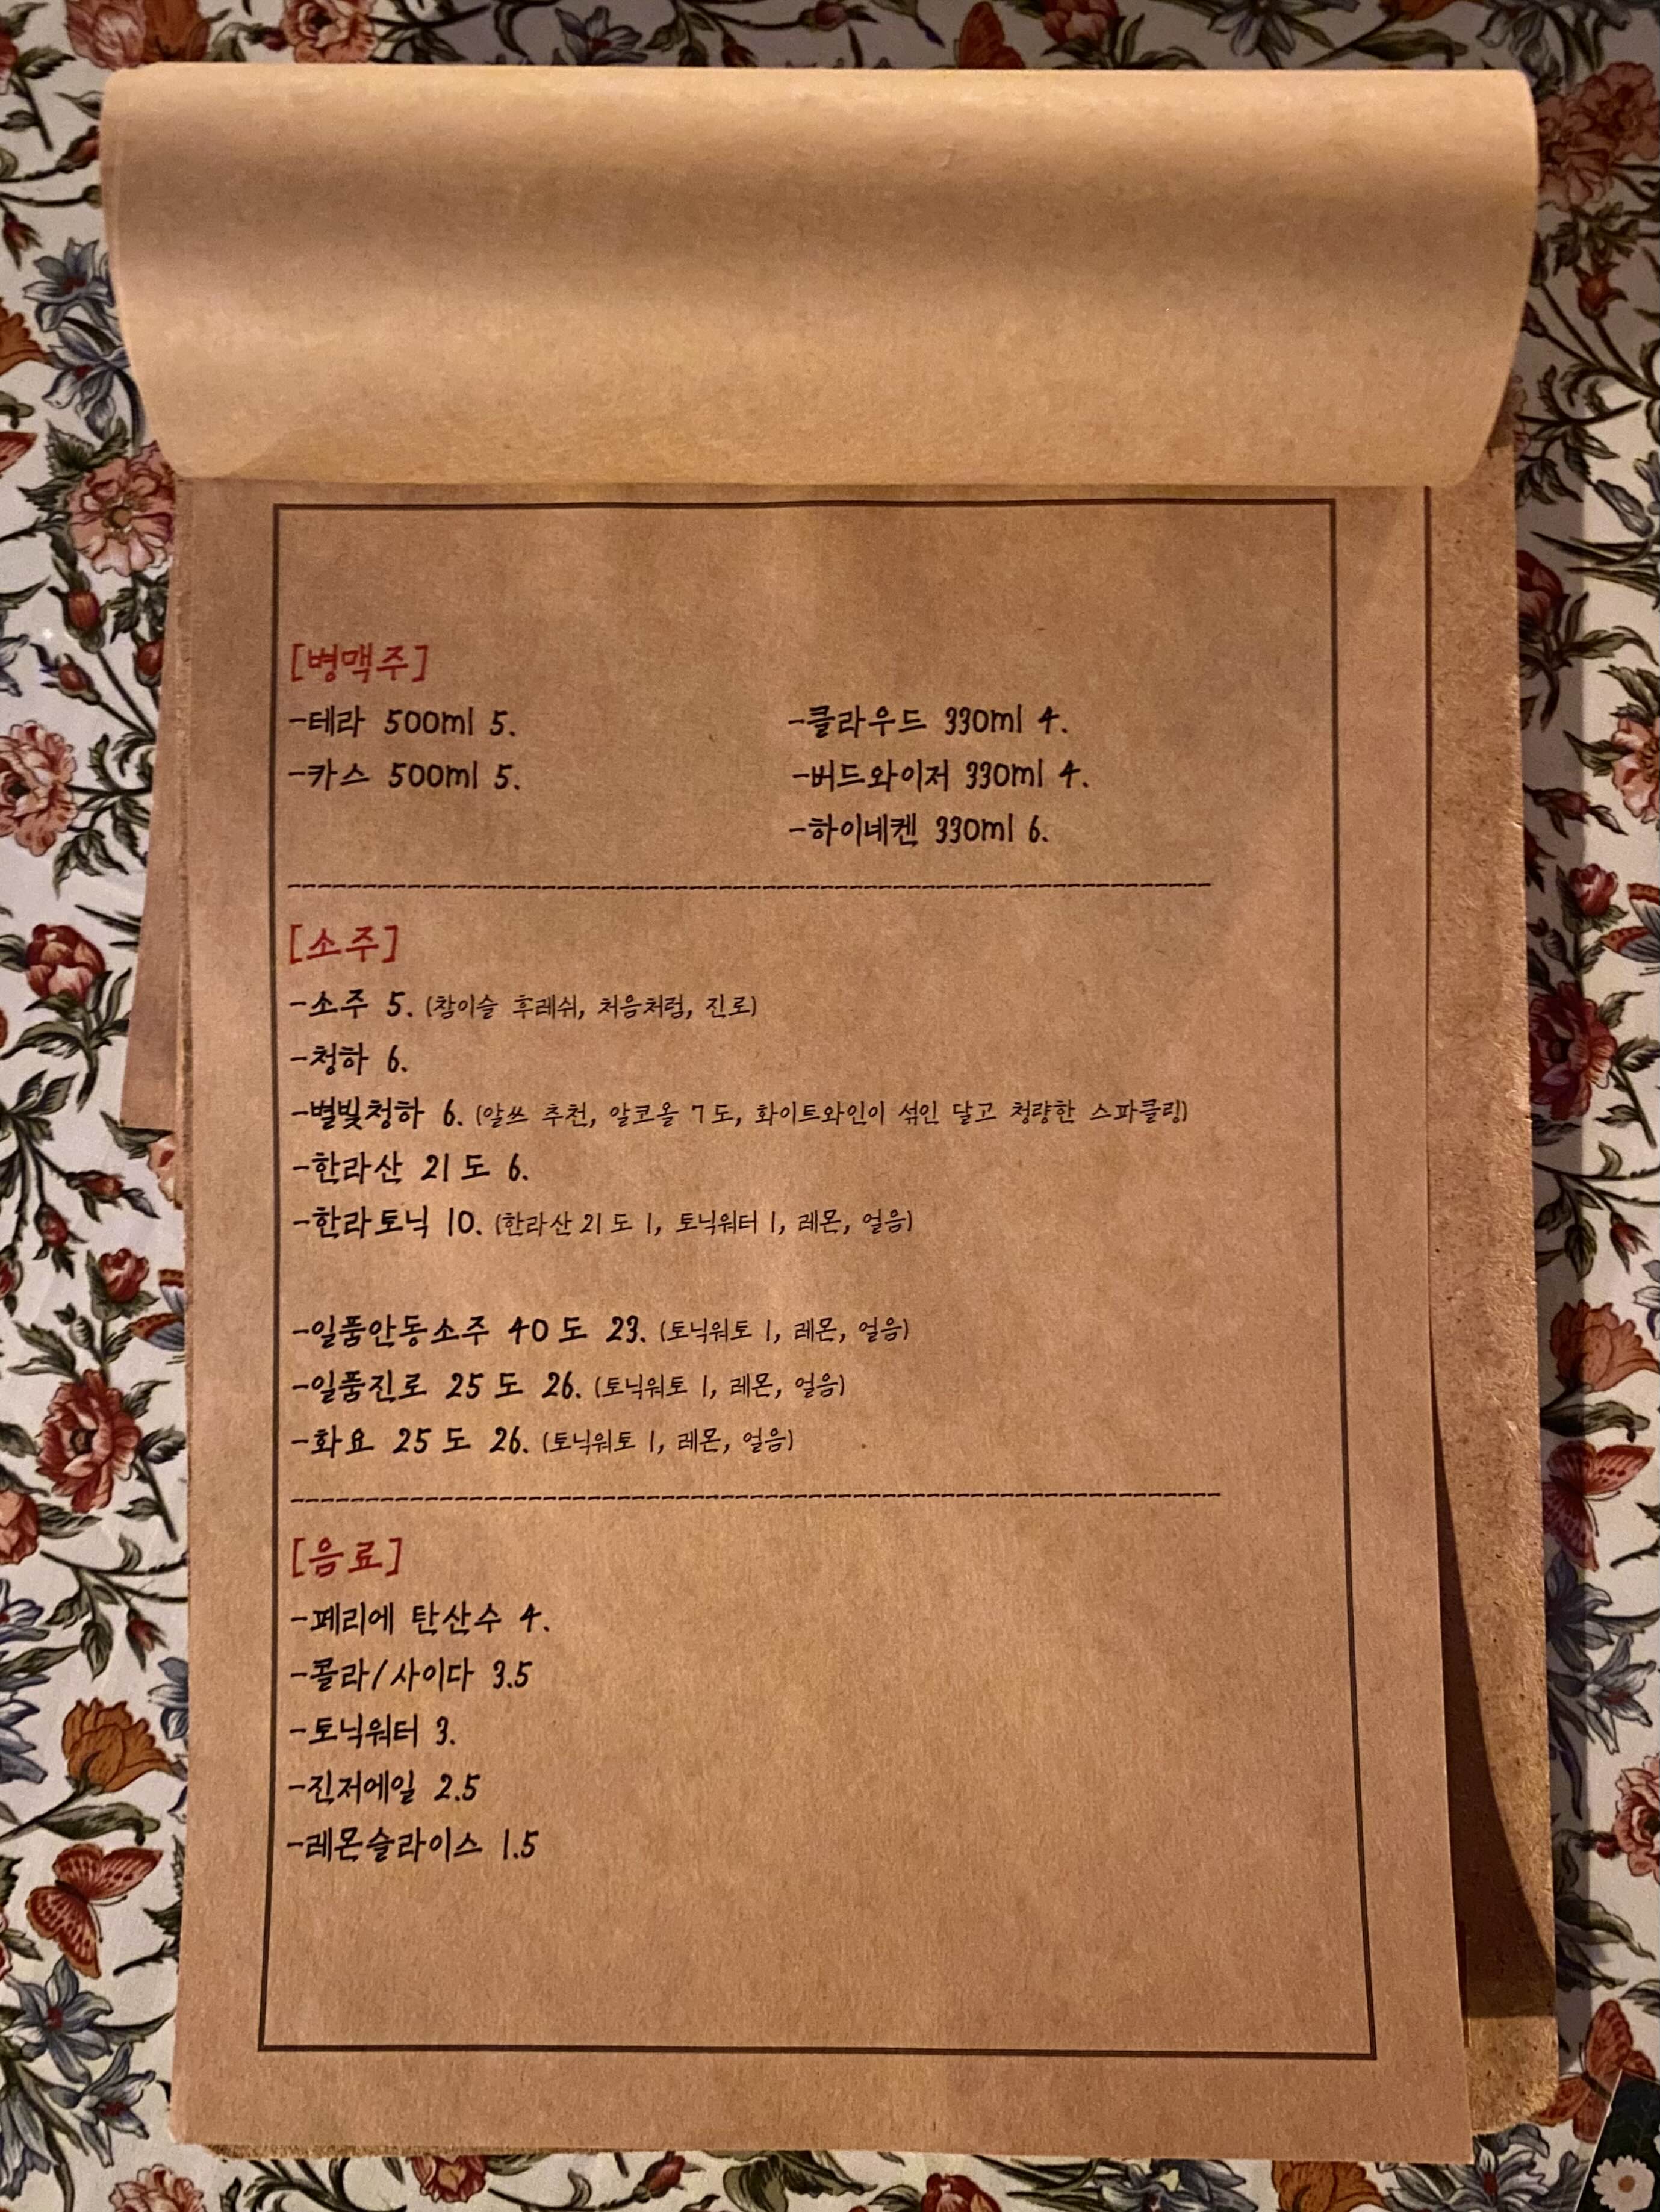 [병맥주]
-테라 500ml 5.
-클라우드 330ml 4.
-카스 500ml 5.
-버드와이저 330ml 4.
-하이네켄 330ml 6.
[소주]
-소주 5. (참이슬 후레쉬, 처음처럼, 진로)
-청하 6.
-별빛청하 6. (알쓰 추천, 알코올 7도, 화이트와인이 섞인 달고 청량한 스파클링)
-한라산 21도 6.
-한라토닉 10. (한라산21도 1, 토닉워터 1, 레몬, 얼음)
-일품안동소주 40도 23. (토닉워토 1, 레몬, 얼음)
-일품진로 25도 26. (토닉워토 1, 레몬, 얼음)
-화요 25도 26. (토닉워토 1, 레몬, 얼음)
[음료]
-페리에 탄산수 4.
-콜라/사이다 3.5
-토닉워터 3.
-진저에일 2.5
-레몬슬라이스 1.5